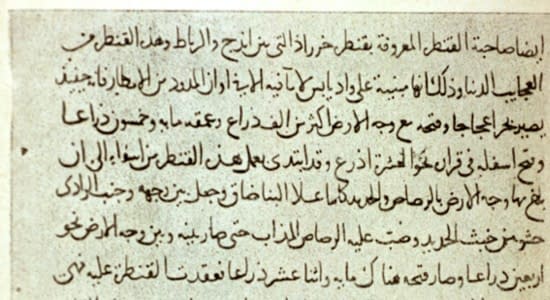 ايضا صاحبة القنطر المعروفة بقنطر خرزاد التى بين ايذج والرباط وهذه القنطر من
العجايب الدنيا وذلك انها مبنية على واد يابس لا مآ فيه الا فى اوان المدود من الامطار فانه حينيذ
يصير بحرا عجاجا وفتحه مع وجه الارض اكثر من الف ذراع وعمقه مايه وخمسون ذراعا
وفتح اسفله فى قراره نحو العشرة اذرع وقد ابتدى بعمل هذه القنطر من اسفله الى ان
بلغ بها وجه الارض بالرصاص والحديد كلما علا البنا ضاق وجعل بين وجهه وجنب الوادى
حشو من خبث الحديد وصب عليه الرصاص المذاب حتى صار بينه وبين وجه الارض نحو
اربعين ذراعا وصار فتحه هناك مايه واثنا عشر ذراعا فعقدت القنطر عليه فهى